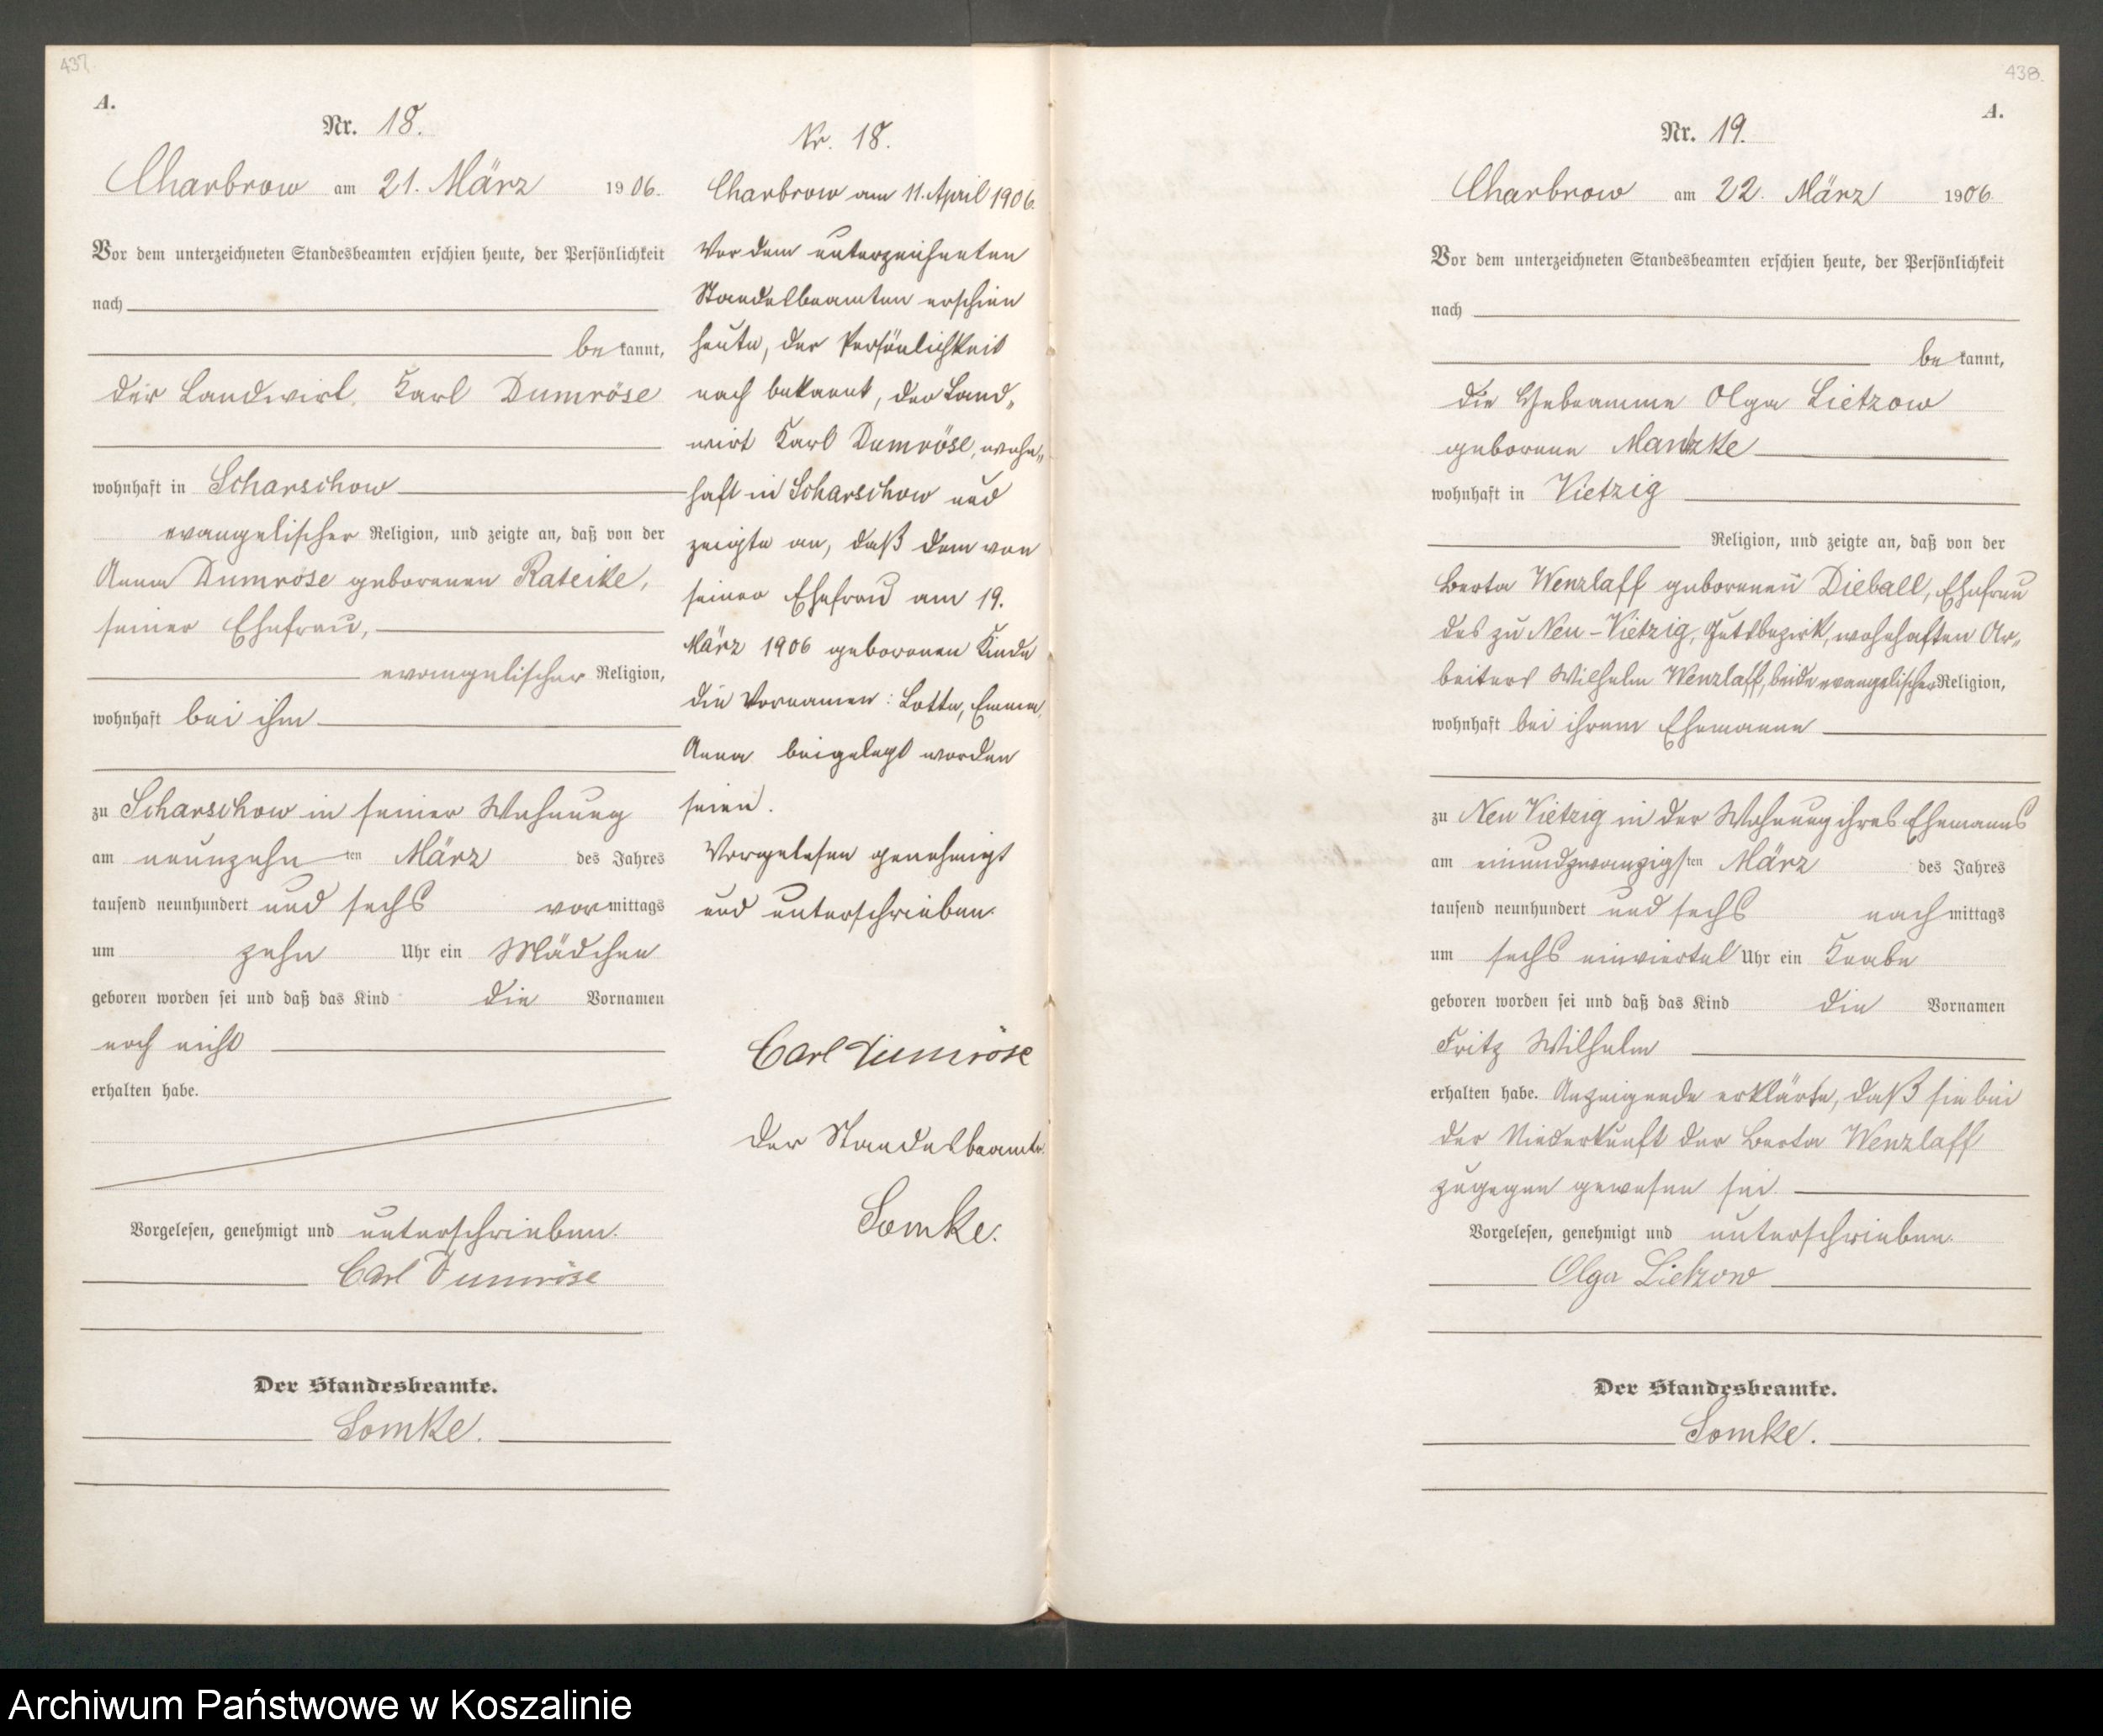 437.
A.
Nr. 18.
Charbrow am 21. März 1906.
Vor dem unterzeichneten Standesbeamten erschien heute, der Persönlichkeit
nach
bekannt,
der Landwirt Karl Dumröse
wohnhaft in Scharschow
evangelischer Religion, und zeigte an, daß von der
Anna Dumröse geborenen Rateike,
seiner Ehefrau,
evangelischer Religion,
wohnhaft bei ihm
zu Scharschow in seiner Wohnung
am neunzehnten März des Jahres
tausend neunhundert und sechs vormittags
um zehn Uhr ein Mädchen
geboren worden sei und daß das Kind die Vornamen
noch nicht
erhalten habe.
Vorgelesen, genehmigt und unterschrieben.
Carl Dumröse
Der Standesbeamte.
Lomke.
Nr. 18.
Charbrow am 11. April 1906.
Vor dem unterzeichneten
Standesbeamten erschien
heute, der Persönlichkeit
nach bekannt, der Land„
wirt Karl Dumröse, wohn„
haft in Scharschow und
zeigte an, daß dem von
seiner Ehefrau am 19.
März 1906 geborenen Kinde
die Vornamen: Lotte, Emma,
Anna beigelegt worden
seien.
Vorgelesen genehmigt
und unterschrieben.
Carl Dumröse
Der Standesbeamte.
Lomke.
438.
A.
Nr. 19.
Charbrow am 22. März 1906.
Vor dem unterzeichneten Standesbeamten erschien heute, der Persönlichkeit
nach
bekannt,
die Hebeamme Olga Lietzow
geborene Mantzke
wohnhaft in Vietzig
Religion, und zeigte an, daß von der
Berta Wenzlaff geborenen Dieball, Ehefrau
des zu Neu-Vietzig, Gutsbezirk, wohnhaften Ar„
beiters Wilhelm Wenzlaff, beide evangelischer Religion,
wohnhaft bei ihrem Ehemanne
zu Neu Vietzig in der Wohnung ihres Ehemanns
am einundzwanzigsten März des Jahres
tausend neunhundert und sechs nachmittags
um sechs einviertel Uhr ein Knabe
geboren worden sei und daß das Kind die Vornamen
Fritz Wilhelm
erhalten habe. Anzeigende erklärte, daß sie bei
der Niederkunft der Berta Wenzlaff
zugegen gewesen sei.
Vorgelesen, genehmigt und unterschrieben.
Olga Lietzow
Der Standesbeamte.
Lomke.
Archiwum Państwowe w Koszalinie